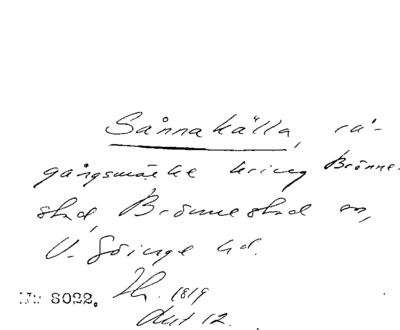 Sånnakälla, rå-
gångsmärke kring Brönne-
stad, Brönnestad sn,
V. Göinge hd.
Nr 8022. Th. 1819
Aut 12.